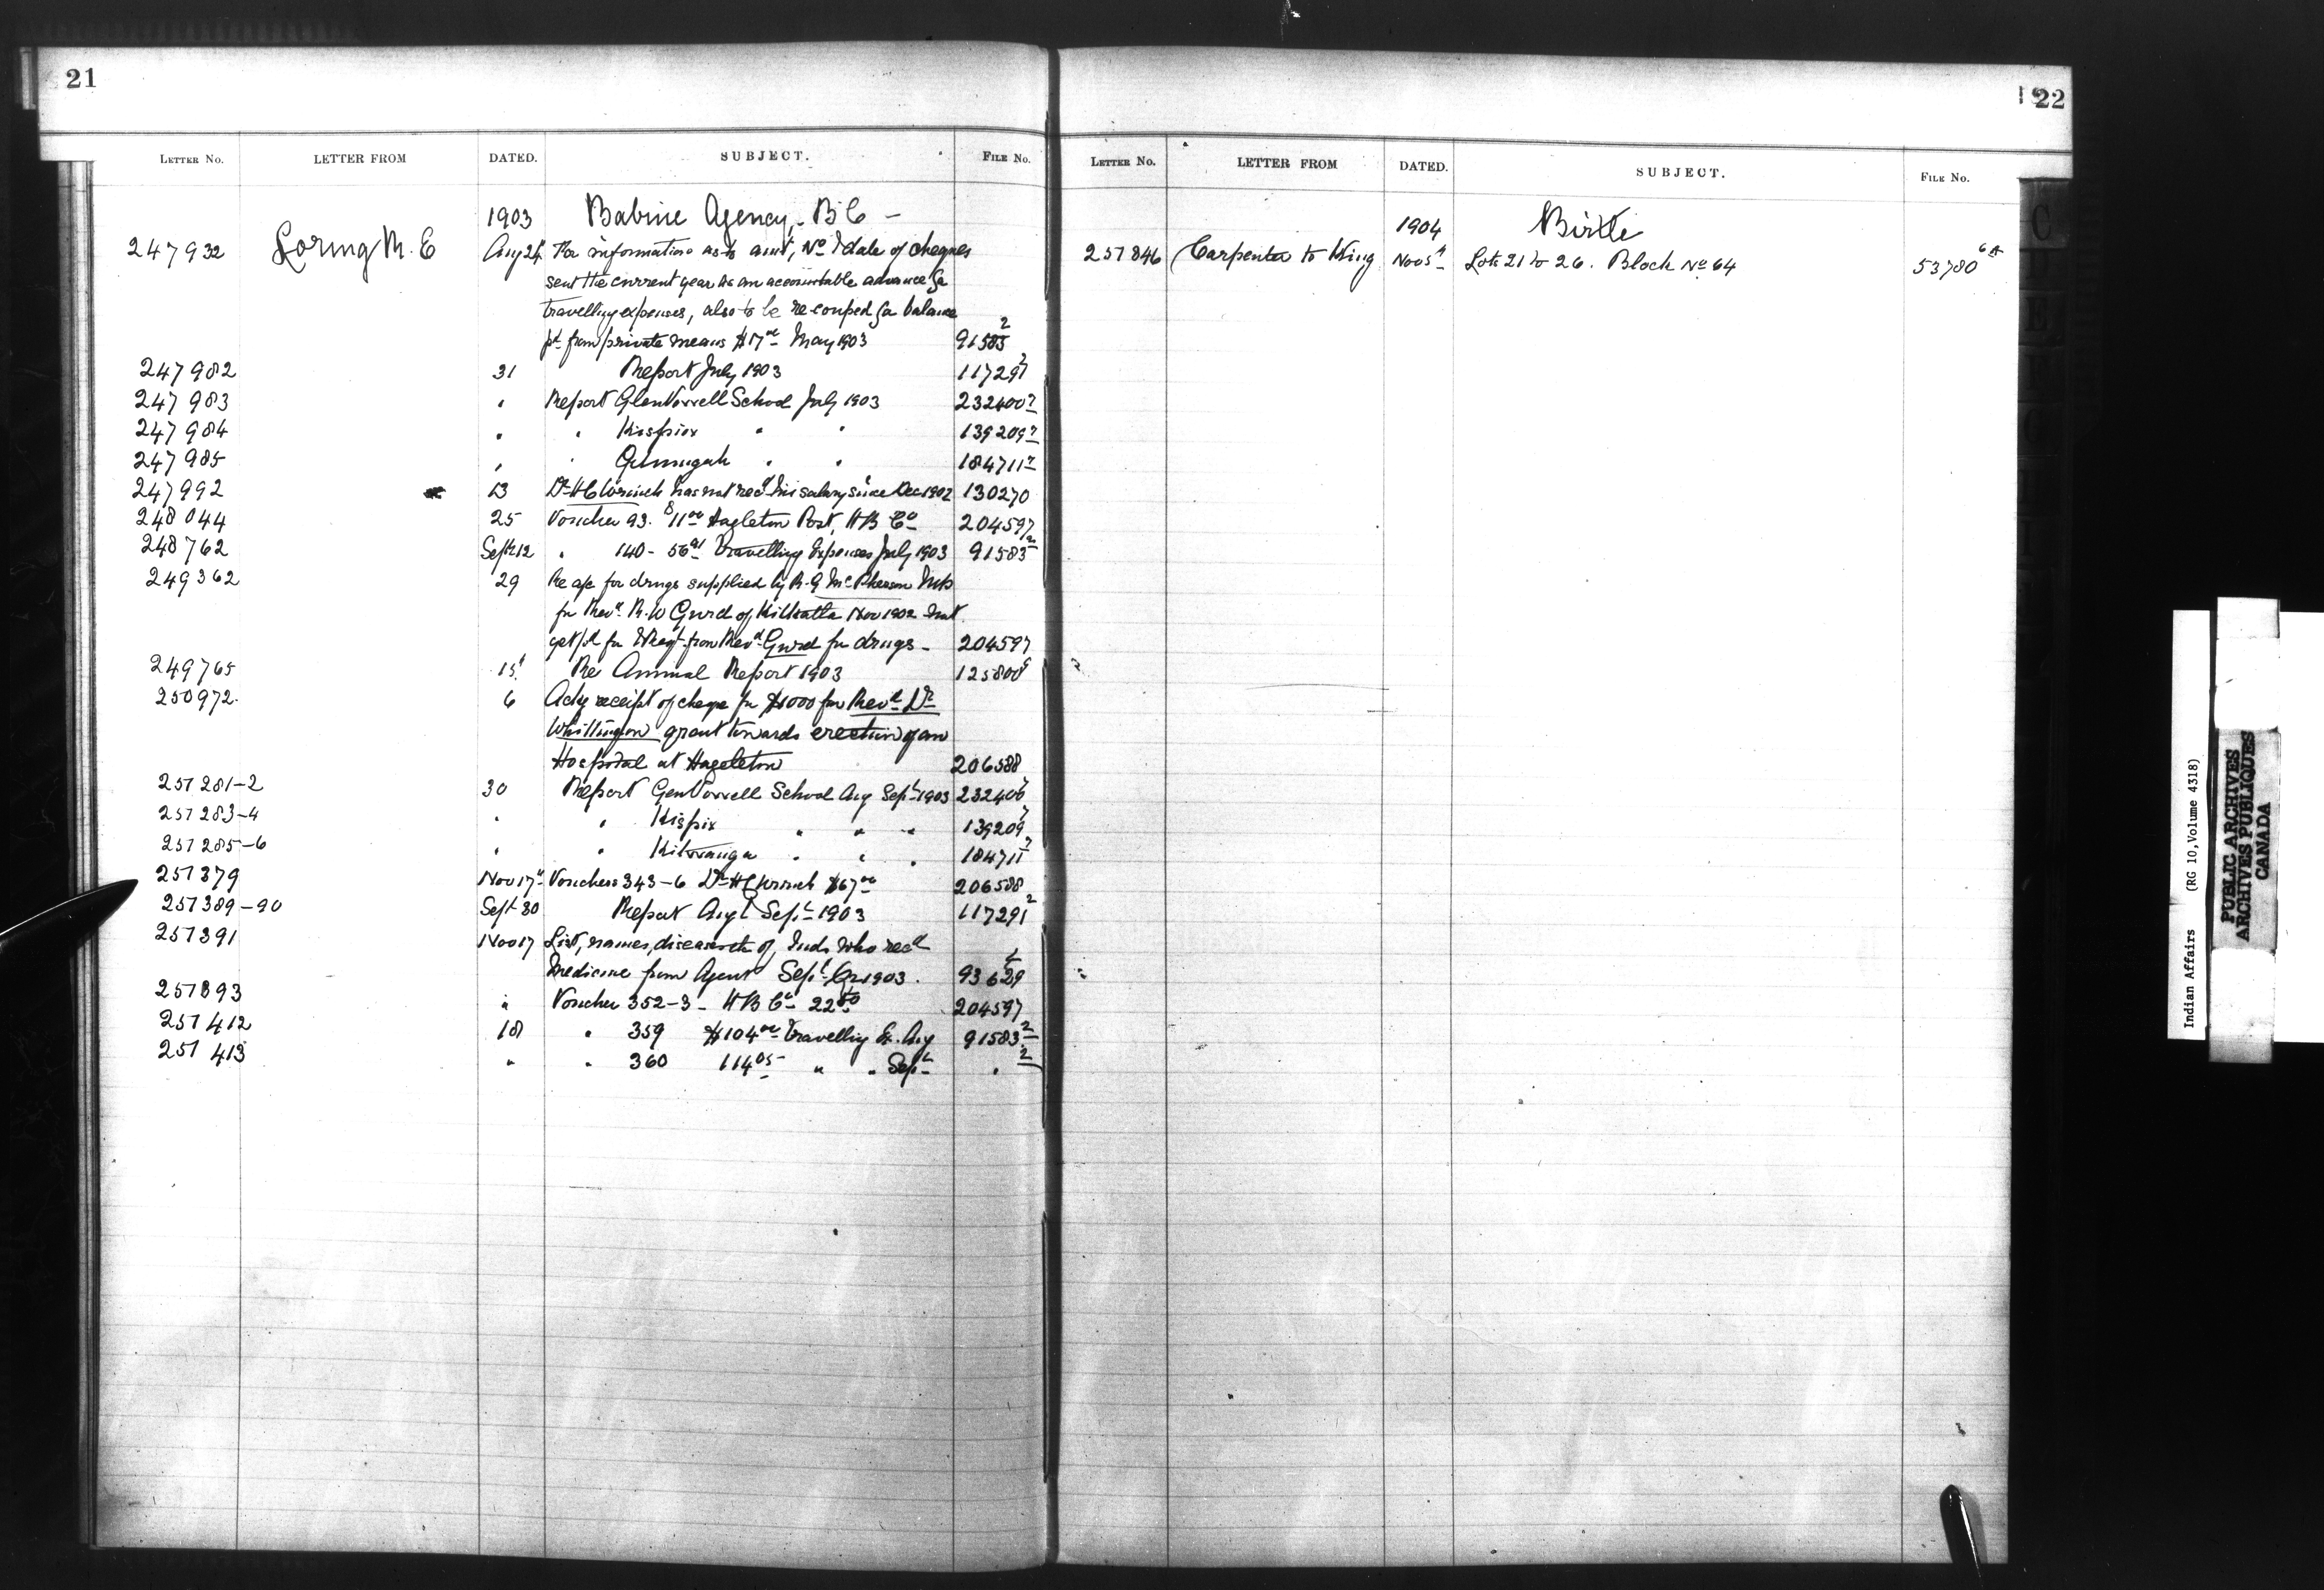 21
LETTER No. LETTER FROM DATED. SUBJECT. FILE No.
1903 Babine Agency, B C –
247932 Loring R. E Aug 24 For information as to amt, No & date of cheques
sent the current year as an accountable advance for
travelling expenses, also to be recouped for balance
pd from private means $17.00 May 1903 91583 2
247982 31 Report July 1903 117291 2
247983 " Report Glen Vowell School July 1903 232400 7
247984 " " Kispiox " " 139209 7
247985 " " " " 184711 7
247992 13 Dr H C Wrinch has not recd his salary since Dec 1902 130270
248044 25 Voucher 93. $11.00 Hazleton Post, H B Co 204597
248762 Sept 12 " 140 - 56.91 Travelling Expenses July 1903 91583 2
249362 29 Re a/c for drugs supplied by R. G McPherson
for Revd. R. W Gurd of Kitkatla Nov 1902
from Revd Gurd for drugs - 204597
249765 15 Re Annual Report 1903 125800
250972. 6 Ackg receipt of cheque for $1000 for Revd Dr
Whittington grant towards erection of an
Hospital at Hazelton 206588
251281-2 30 Report Glen Vowell School Aug Sept 1903 232400 7
251283-4 " " Kispix " " " 139209 7
251285-6 " " Kitwanga " " " 184711 7
251379 Nov 17 Vouchers 343-6 Dr H C Wrinch $67.00 206588
251389-90 Sept 30 Report Aug & Sept 1903 117291 2
251391 Nov 17 List, names, diseases etc of Inds who recd
Medicine from Agent Sept Qr 1903. 93629
251393 " Voucher 352-3 - H B Co 22.50 204597
251412 18 " 359 $104.00 Travelling Ex. Aug 91583 2
251413 " " 360 114.05 " " Sept " 2
22
LETTER No. LETTER FROM DATED. SUBJECT. FILE No.
1904 Birtle
257846 Carpenter to King Nov 5 Lots 21 to 26. Block No 64 53780 6A
Indian Affairs (RG 10, Volume 4318)
PUBLIC ARCHIVES
ARCHIVES PUBLIQUES
CANADA